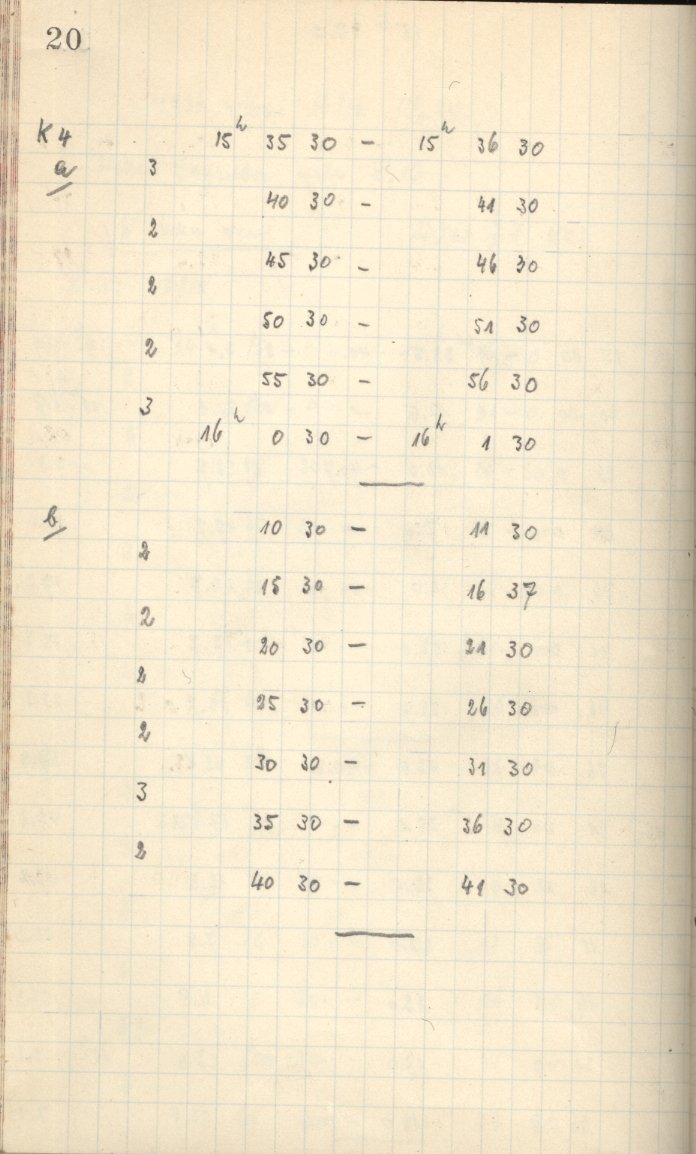 20
K4 15h 35 30 – 15h 36 30
a 3
40 30 – 41 30
2
45 30 – 46 30
2
50 30 – 51 30
2
55 30 – 56 30
3
16h 0 30 – 16h 1 30
b 10 30 – 11 30
2
15 30 – 16 37
2
20 30 – 21 30
2
25 30 – 26 30
2
30 30 – 31 30
3
35 30 – 36 30
2
40 30 – 41 30